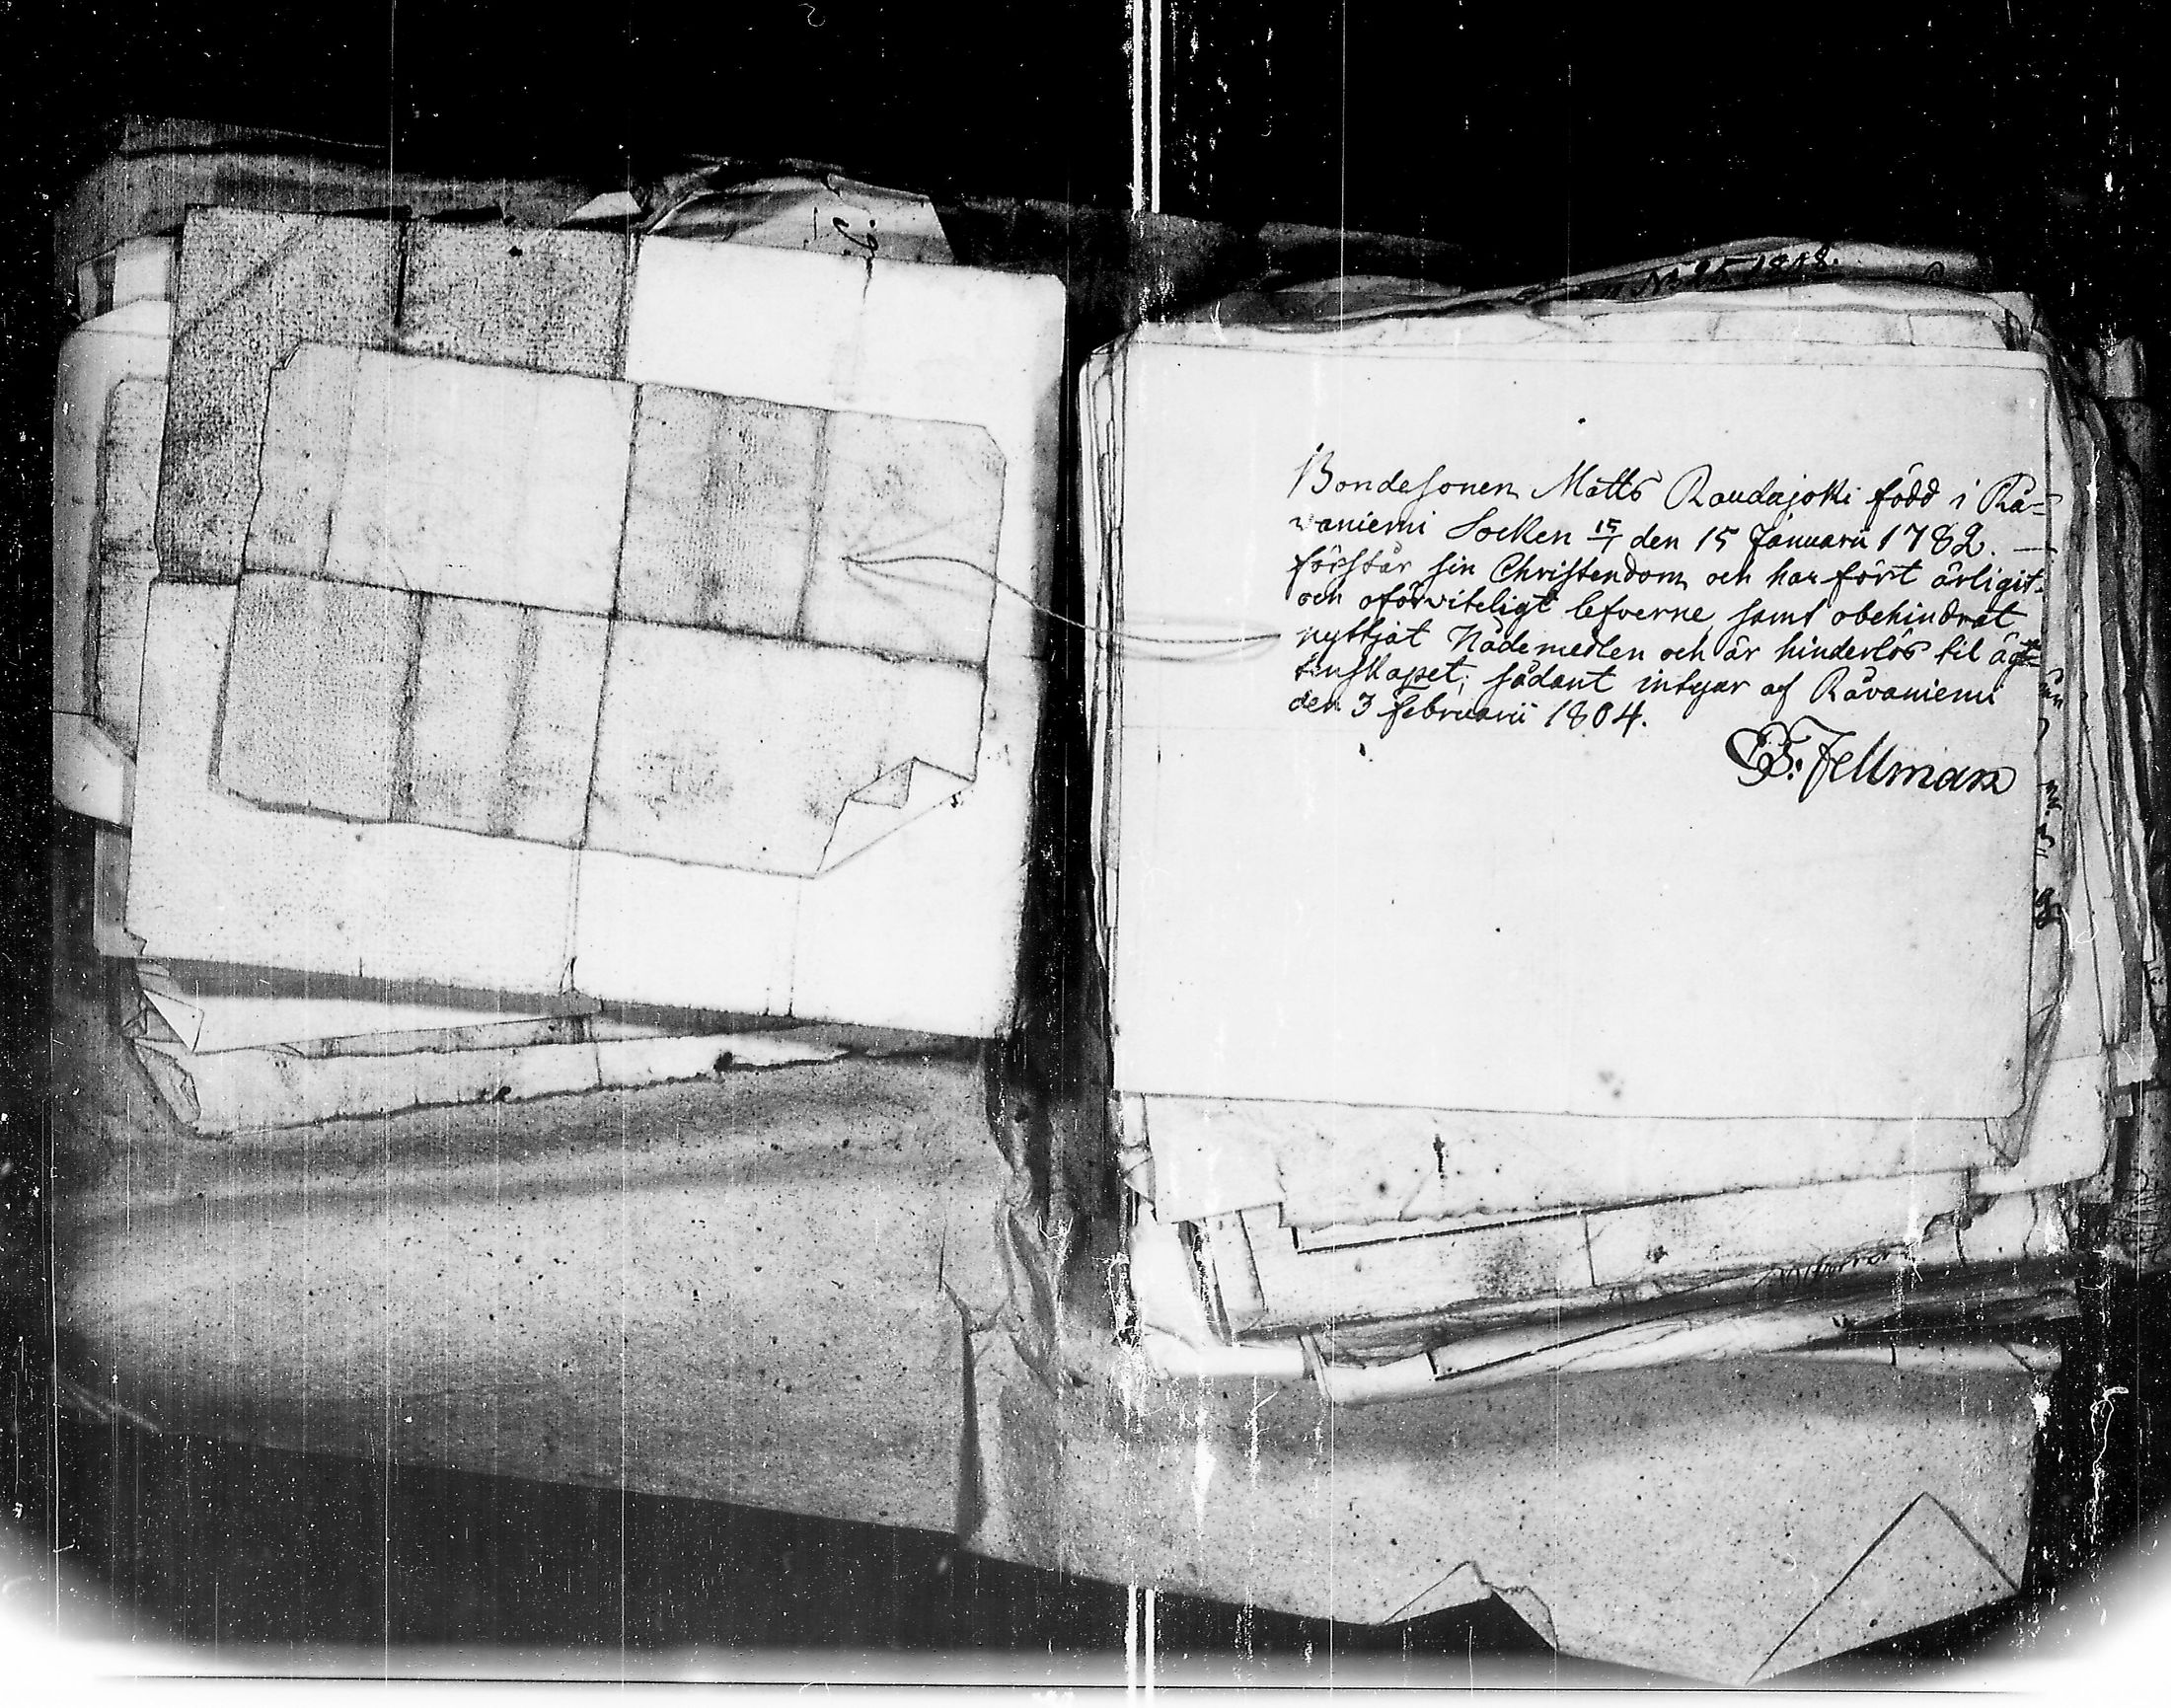 No 25 1808.
Bondesonen Matts Raudajoki född i Rå=
vaniemi Socken 15/1 den 15 Januarii 1782. —
förstår sin Christendom och har fört ärligit
och oförviteligt lefverne samt obehindrat
nyttjat Nådemedlen och är hinderlös til äg=
tenskapet; sådant intygar af Råvaniemi
den 3 Februarii 1804.
E. Fellman